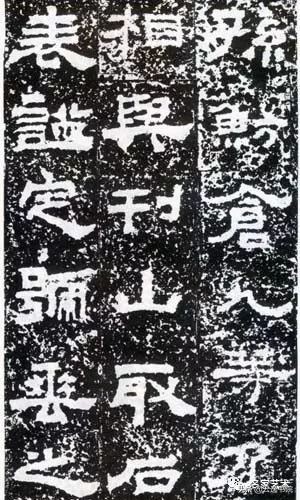 孫魴倉九等乃
相與刊山取石
表謚定號垂之
名家艺术